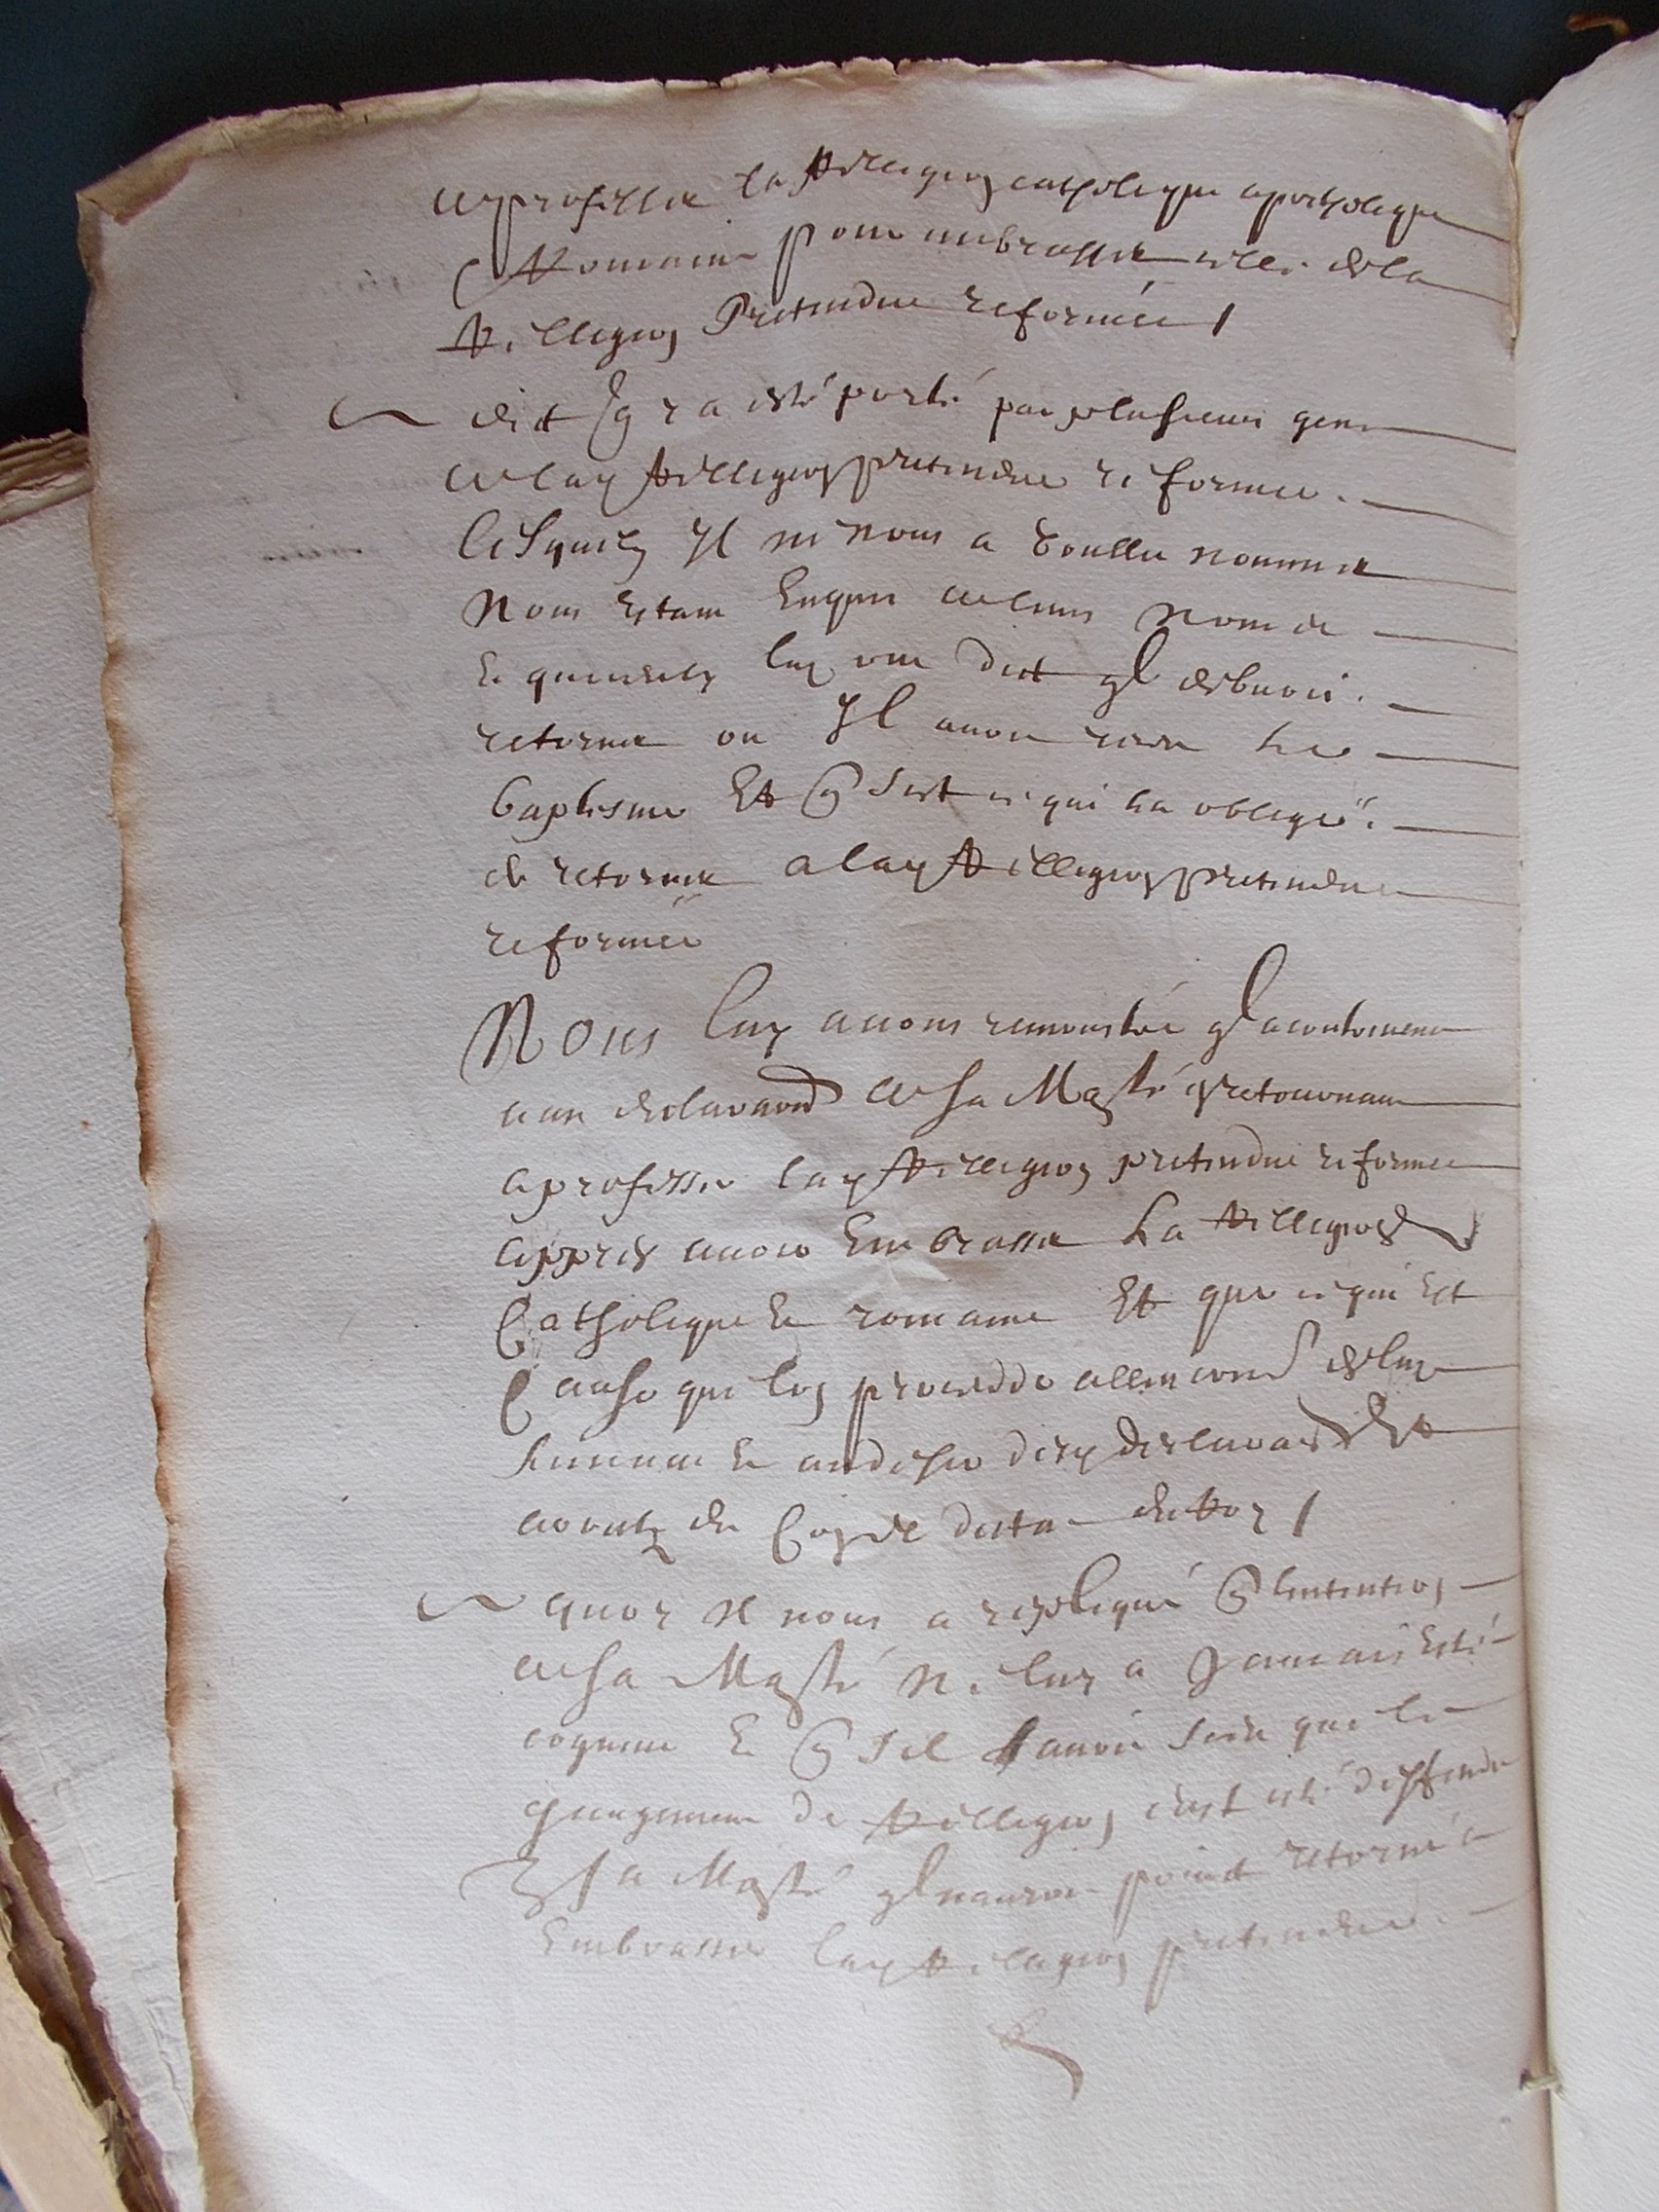 de professer la Relligion catholique apostholique
& Romaine pour embrasser celle de la
Relligion Pretendue reformée /
dit qu'y a esté porté par plusieurs gens
de lad Relligion pretendue reformee
lesquels Il ne nous a voullu nommer
Nous estant enquis de leurs noms
& que luy ont dit quil debvoit
retorner ou Il avoit receu le
baptesme Et que cest ce qui la obligé
de retorner a lad Relligion pretendue
reformée
Nous luy avons remonstré quil a contrevenu
aux declaraons de sa Majesté retournant
a professer lad Relligion pretendue reformee
appres avoir Embrassé La Relligion
Catholique & romaine Et que ce qui est
Cause que lon procedde allencontre de luy
suivant & au desir desd declaraons Et
arrests du Conseil destat du Roy /
quoy Il nous a repliqué que lintention
de sa Majesté ne luy a Jamais esté
cogneue & que sil avoit sceu que le
changement de Relligion eust esté deffendu
par sa Majesté quil nauroit point retorné a
Embrasser lad Relligion pretendue